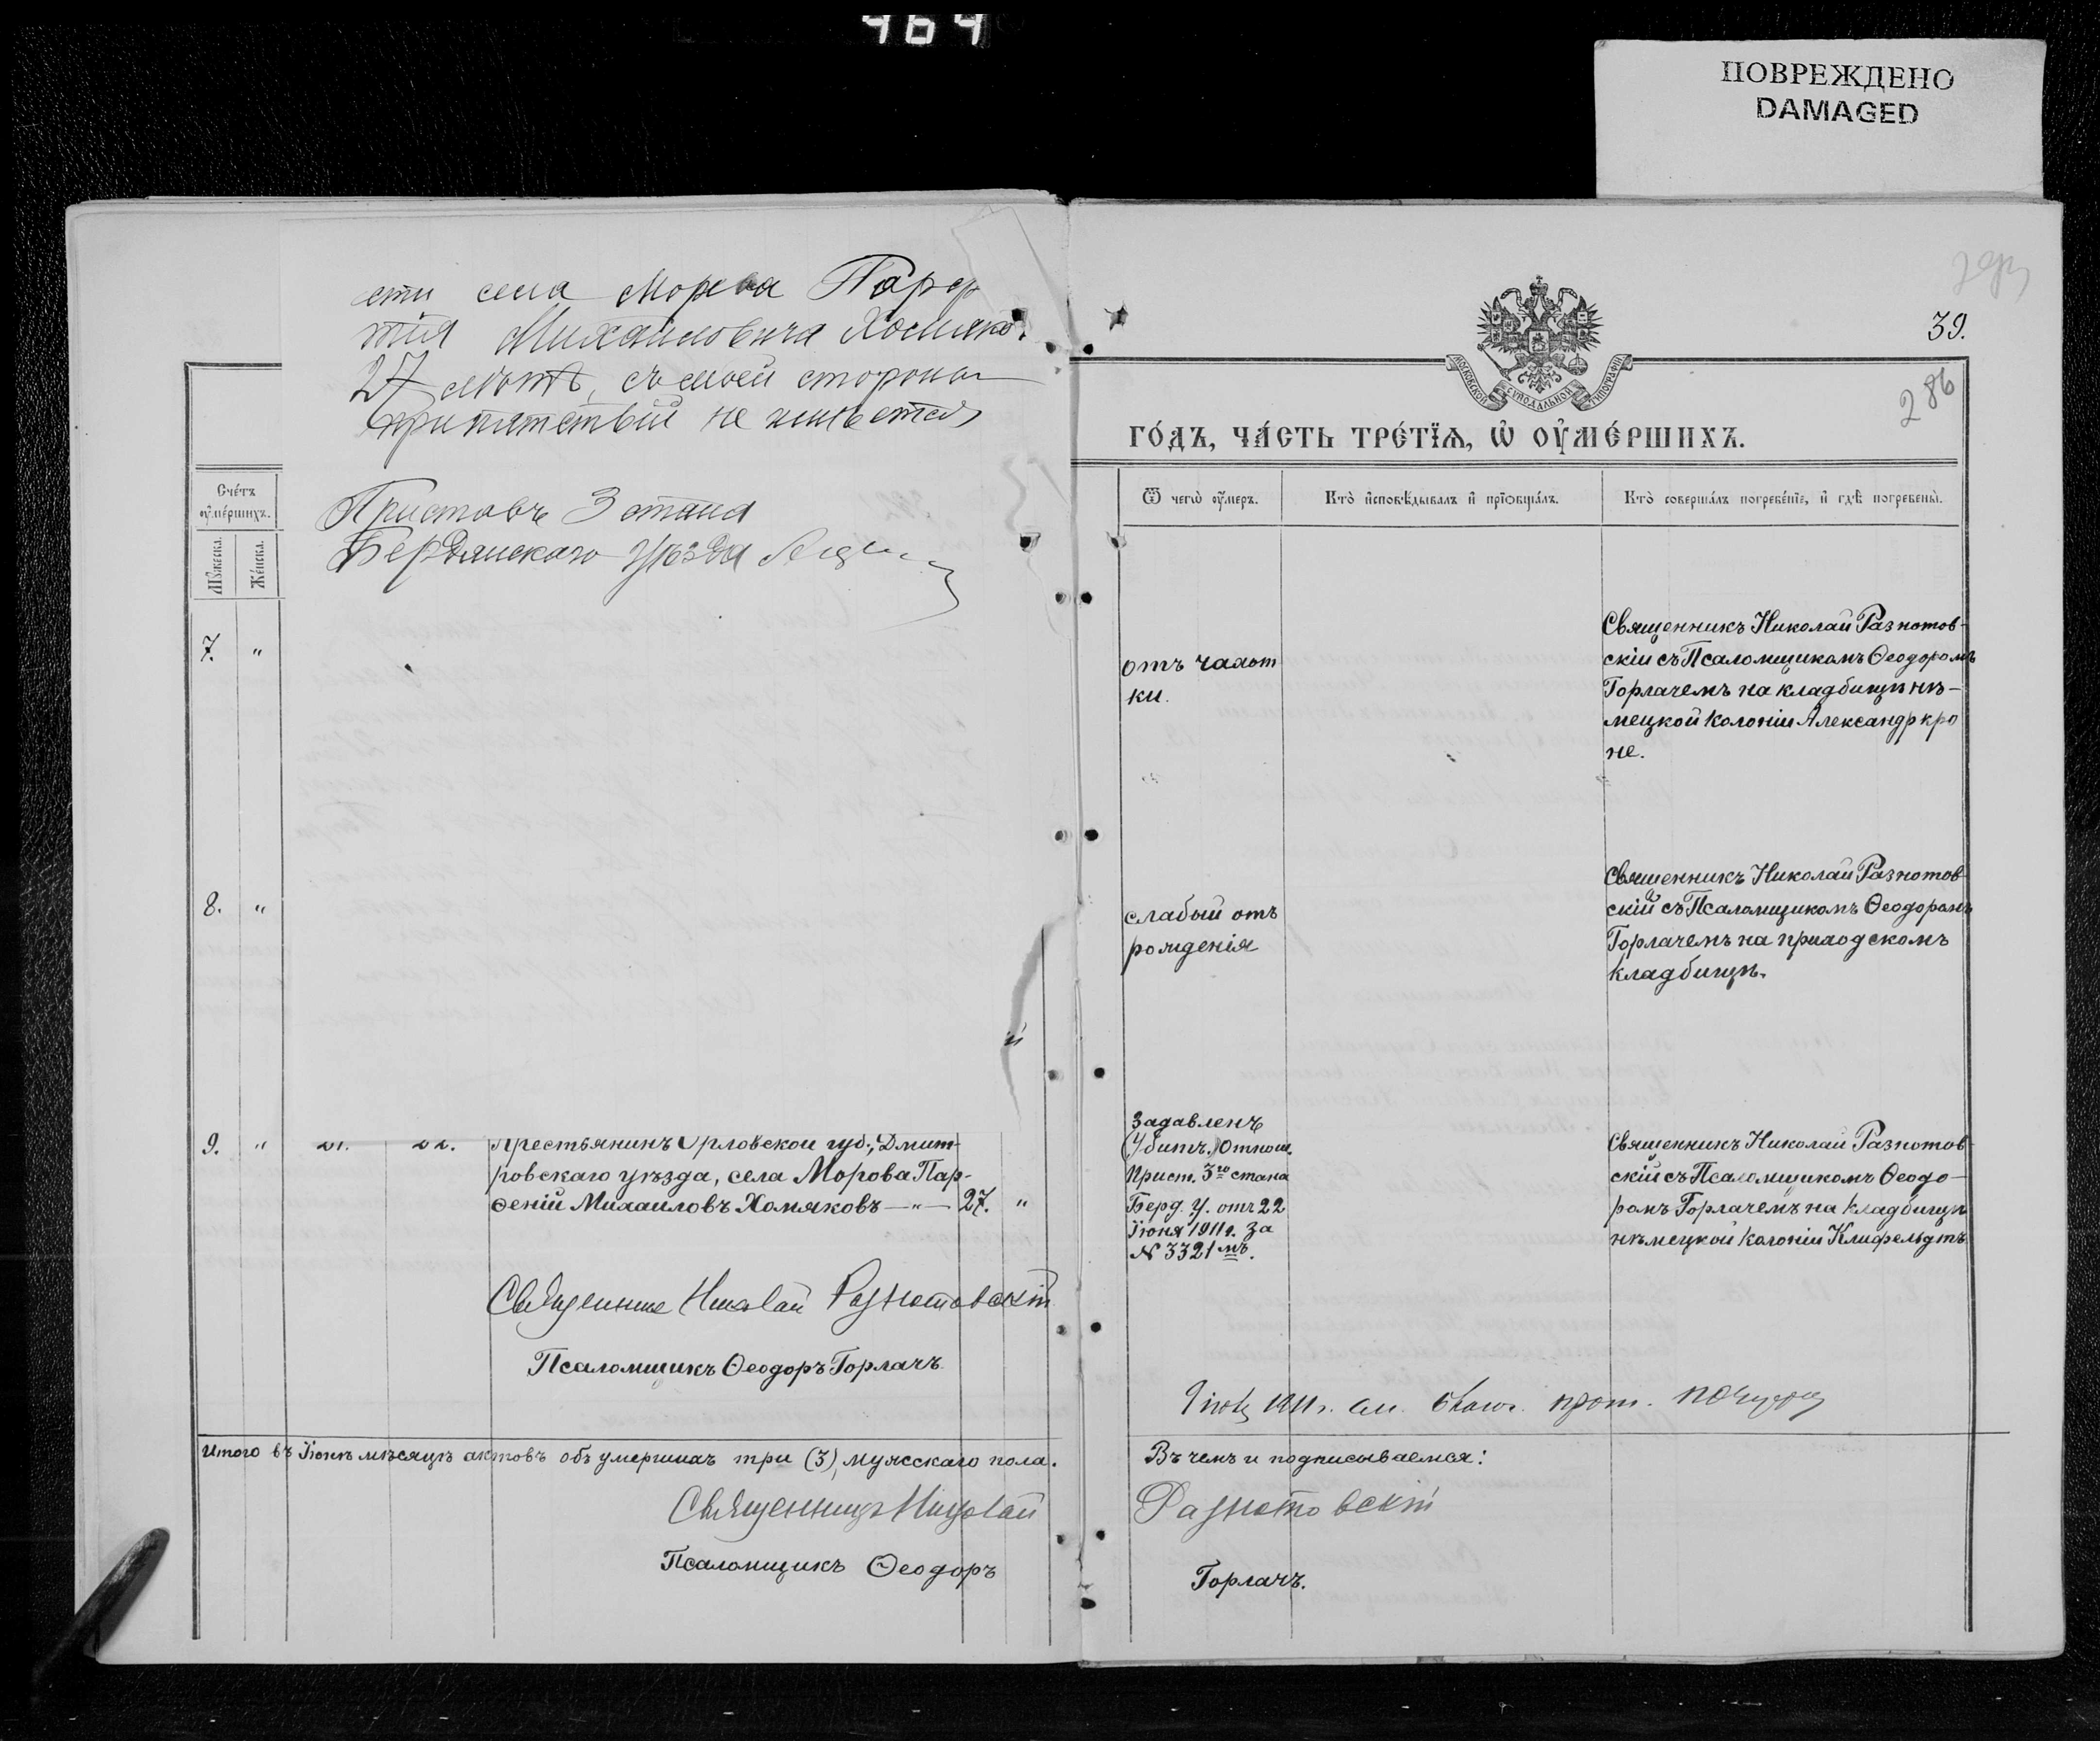 464
ПОВРЕЖДЕНО
DAMAGED
сти села Морева Парѳ
тія Михайловича Хомяко.
27 лѣтъ, съ моей стороны
препятствій не имѣется
Приставъ 3 стана
Бердянскаго уѣзда
Сче́тъ
ѹ҆ме́ршихъ.
Мꙋ́жеска.
Же́нска.
7. "
8. "
9. " 21. 22. Крестьянинъ Орловской губ., Дмит-
ровскаго уѣзда, села Морова Пар-
ѳеній Михаиловъ Хомяковъ —"— 27. "
Священникъ Николай Разнотовскій
Псаломщикъ Ѳеодоръ Горлачъ.
Итого въ Іюнѣ мѣсяцѣ актовъ объ умершихъ три (3), мужскаго пола.
Священникъ Николай
Псаломщикъ Ѳеодоръ
39.
286
МОСКОВСКОЙ СѴНОДАЛЬНОЙ ТИПОГРАФІИ
ГО́ДЪ, ЧА́СТЬ ТРЕ́ТЇѦ, Ѡ҆ ОУ҆МЕ́РШИХЪ.
Ѿ чегѡ̀ ѹ҆́меръ.
Кто̀ и҆сповѣ́дывалъ и҆ прїѡбща́лъ.
Кто̀ соверша́лъ погребе́нїе, и҆ гдѣ̀ погребены̀.
отъ чахот
ки.
Священникъ Николай Разнотов-
скій съ Псаломщикомъ Ѳеодоромъ
Горлачемъ на кладбищѣ нѣ-
мецкой колоніи Александркро
не.
слабый отъ
рожденія
Священникъ Николай Разнотов
скій съ Псаломщикомъ Ѳеодоромъ
Горлачемъ на приходскомъ
кладбищѣ.
Задавленъ
(Убитъ.) Отнош.
Прист. 3го стана
Берд. У. отъ 22
Іюня 1911 г. за
№ 3321 мъ.
Священникъ Николай Разнотов
скій съ Псаломщикомъ Ѳеодо-
ромъ Горлачемъ на кладбищѣ
нѣмецкой колоніи Клифельдтъ
1911 г.
Въ чемъ и подписываемся:
Разнотовскій
Горлачъ.